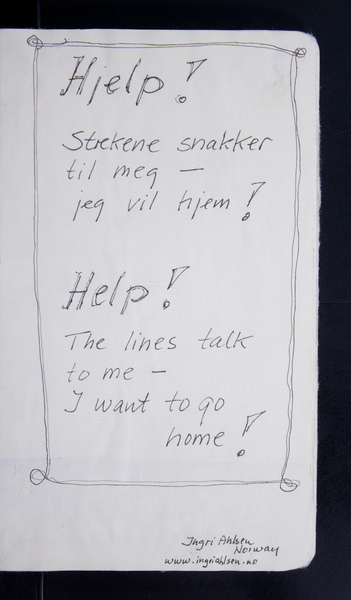 Hjelp!
Strekene snakker
til meg —
jeg vil hjem!
Help!
The lines talk
to me —
I want to go
home!
Ingri Ahlsen
Norway
www.ingriahlsen.no